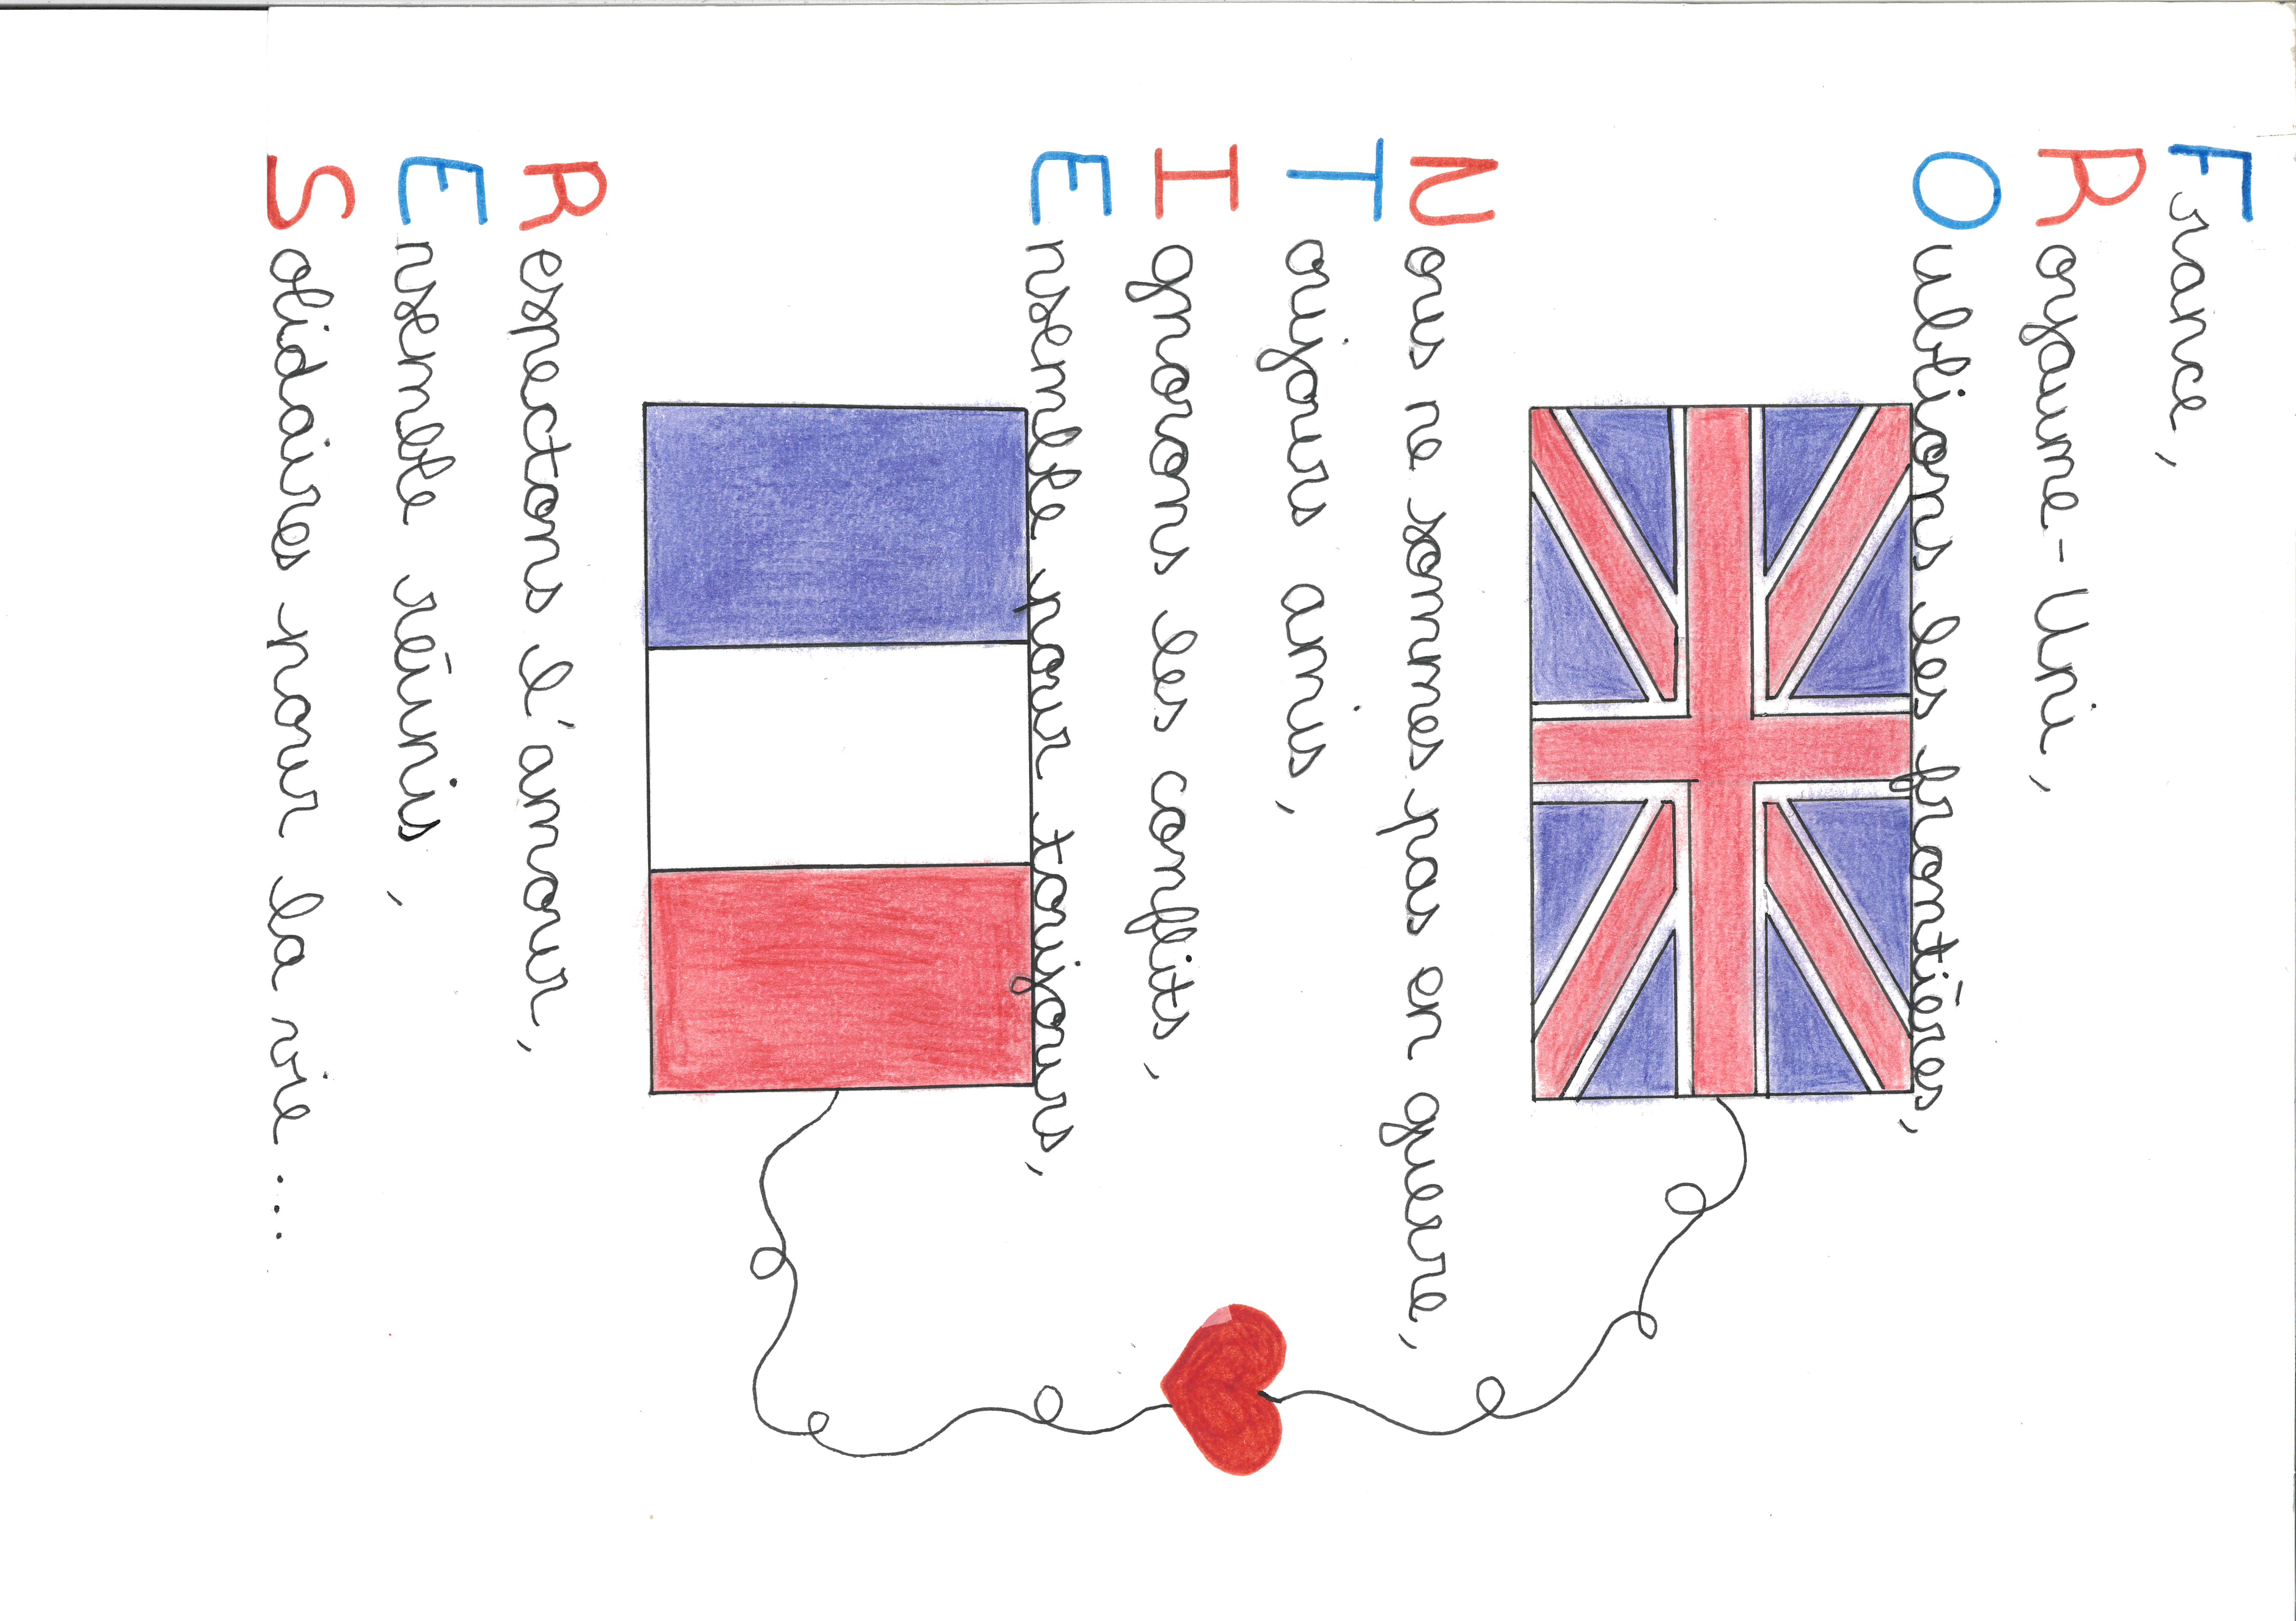 France,
Royaume-Uni,
Oublions les frontières,
Nous ne sommes pas en guerre,
Toujours amis,
Ignorons les conflits,
Ensemble pour toujours,
Respectons l'amour,
Ensemble réunis,
Solidaires pour la vie...